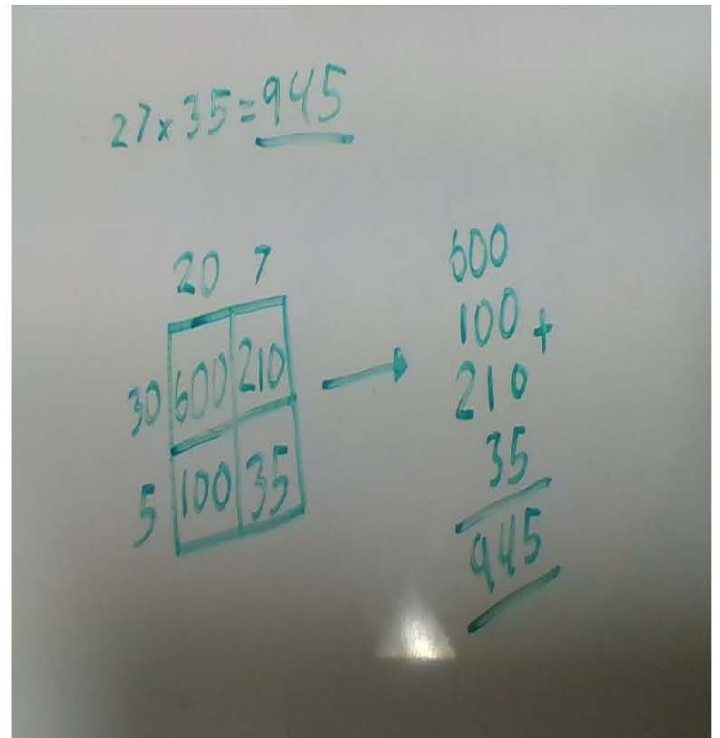 27 x 35 = 945
20 7
30 600 210
5 100 35
600
100 +
210
35
945